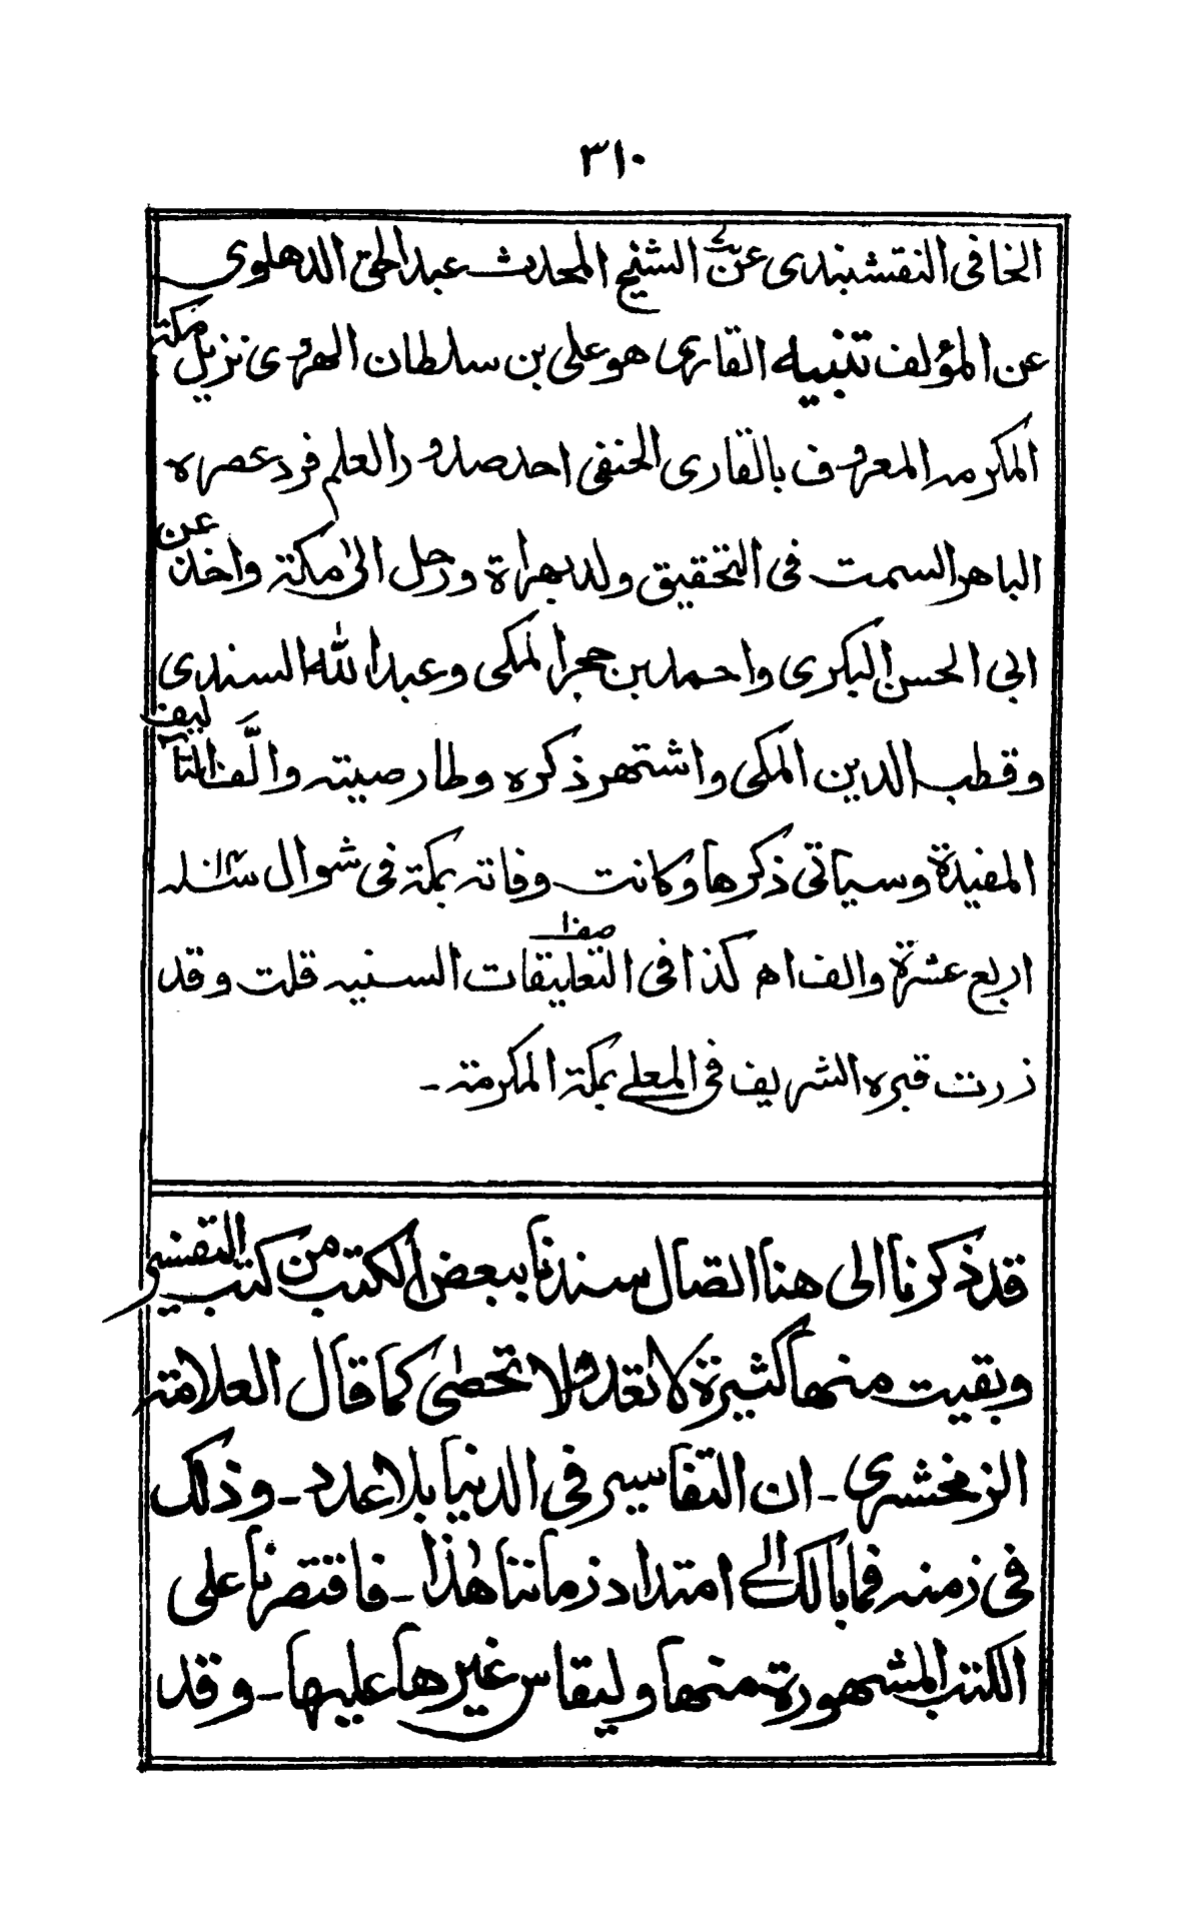 ٣١٠
الخافى النقشبندى عن الشيخ المحدث عبدالحق الدهلوى
عن المؤلف تنبيه القارى هو على بن سلطان الهروى نزيل مكة
المكرمه المعروف بالقارى الحنفى احد صدور العلم فرد عصره
الباهر السمت فى التحقيق ولد بهراة ورحل الى مكة واخذ عن
ابى الحسن البكرى واحمد بن حجر المكى وعبد الله السندى
وقطب الدين المكى واشتهر ذكره وطار صيته والَّف التآليف
المفيدة وسياتى ذكرها وكانت وفاته بمكة فى شوال سنة ١٠١٤
اربع عشرة والف اھ كذا فى التعليقات السنيه قلت وقد
زرت قبره الشريف فى المعلے بمكة المكرمة -
قد ذكرنا الى هنا اتصال سندنا ببعض الكتب من كتب التفسير
وبقيت منها كثيرة لا تعد ولا تحصٰى كما قال العلامة
الزمخشرى - ان التفاسير فى الدنيا بلا عدد - وذلك
فى زمنه فما بالك الے امتداد زماننا هٰذا - فاقتصرنا على
الكتب المشهورة منها وليقاس غيرها عليها - وقد